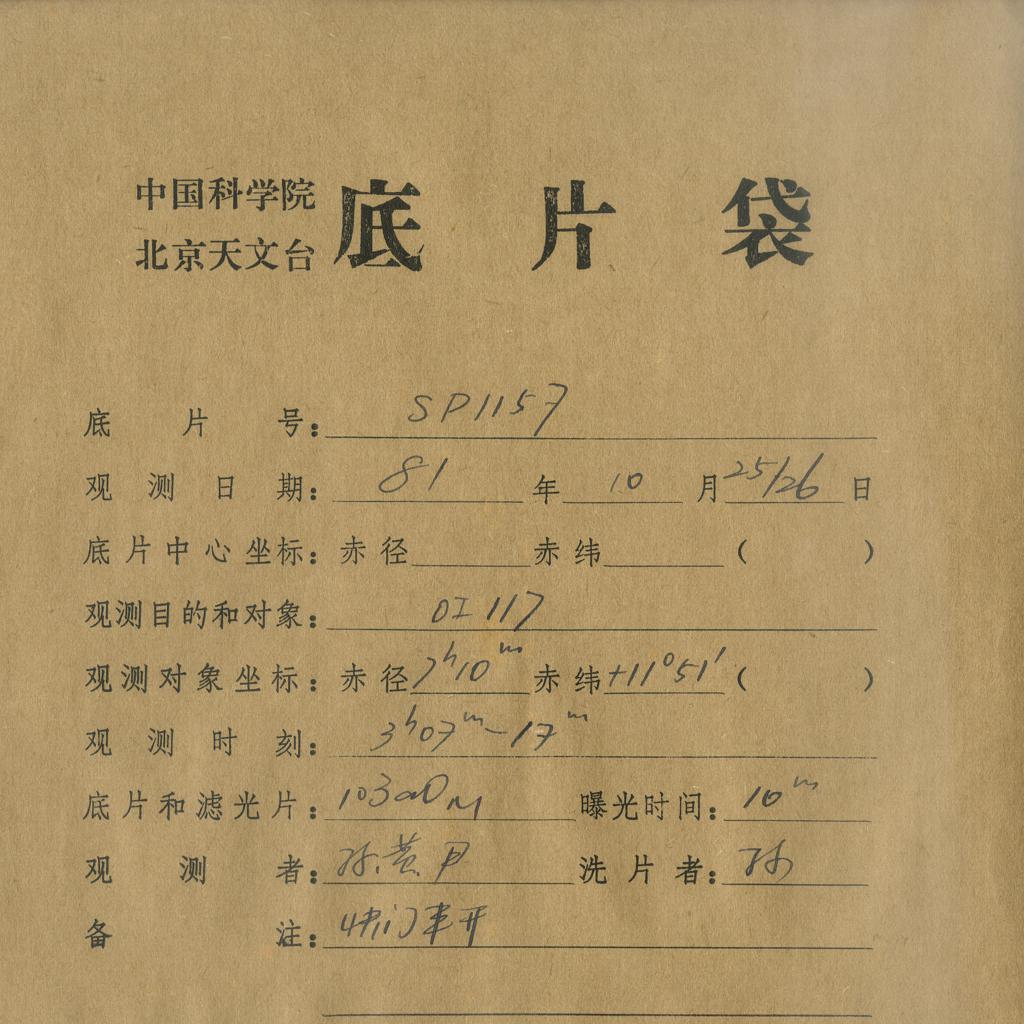 中国科学院
北京天文台
底片袋
底片号：SP1157
观测日期：81年10月25/26日
底片中心坐标：赤径 赤纬 （ ）
观测目的和对象：OI 117
观测对象坐标：赤径7ʰ10ᵐ赤纬+11°51′（ ）
观测时刻：3ʰ07ᵐ-17ᵐ
底片和滤光片：103aO 曝光时间：10ᵐ
观测者：孙.黄.尹 洗片者：孙
备注：快门未开